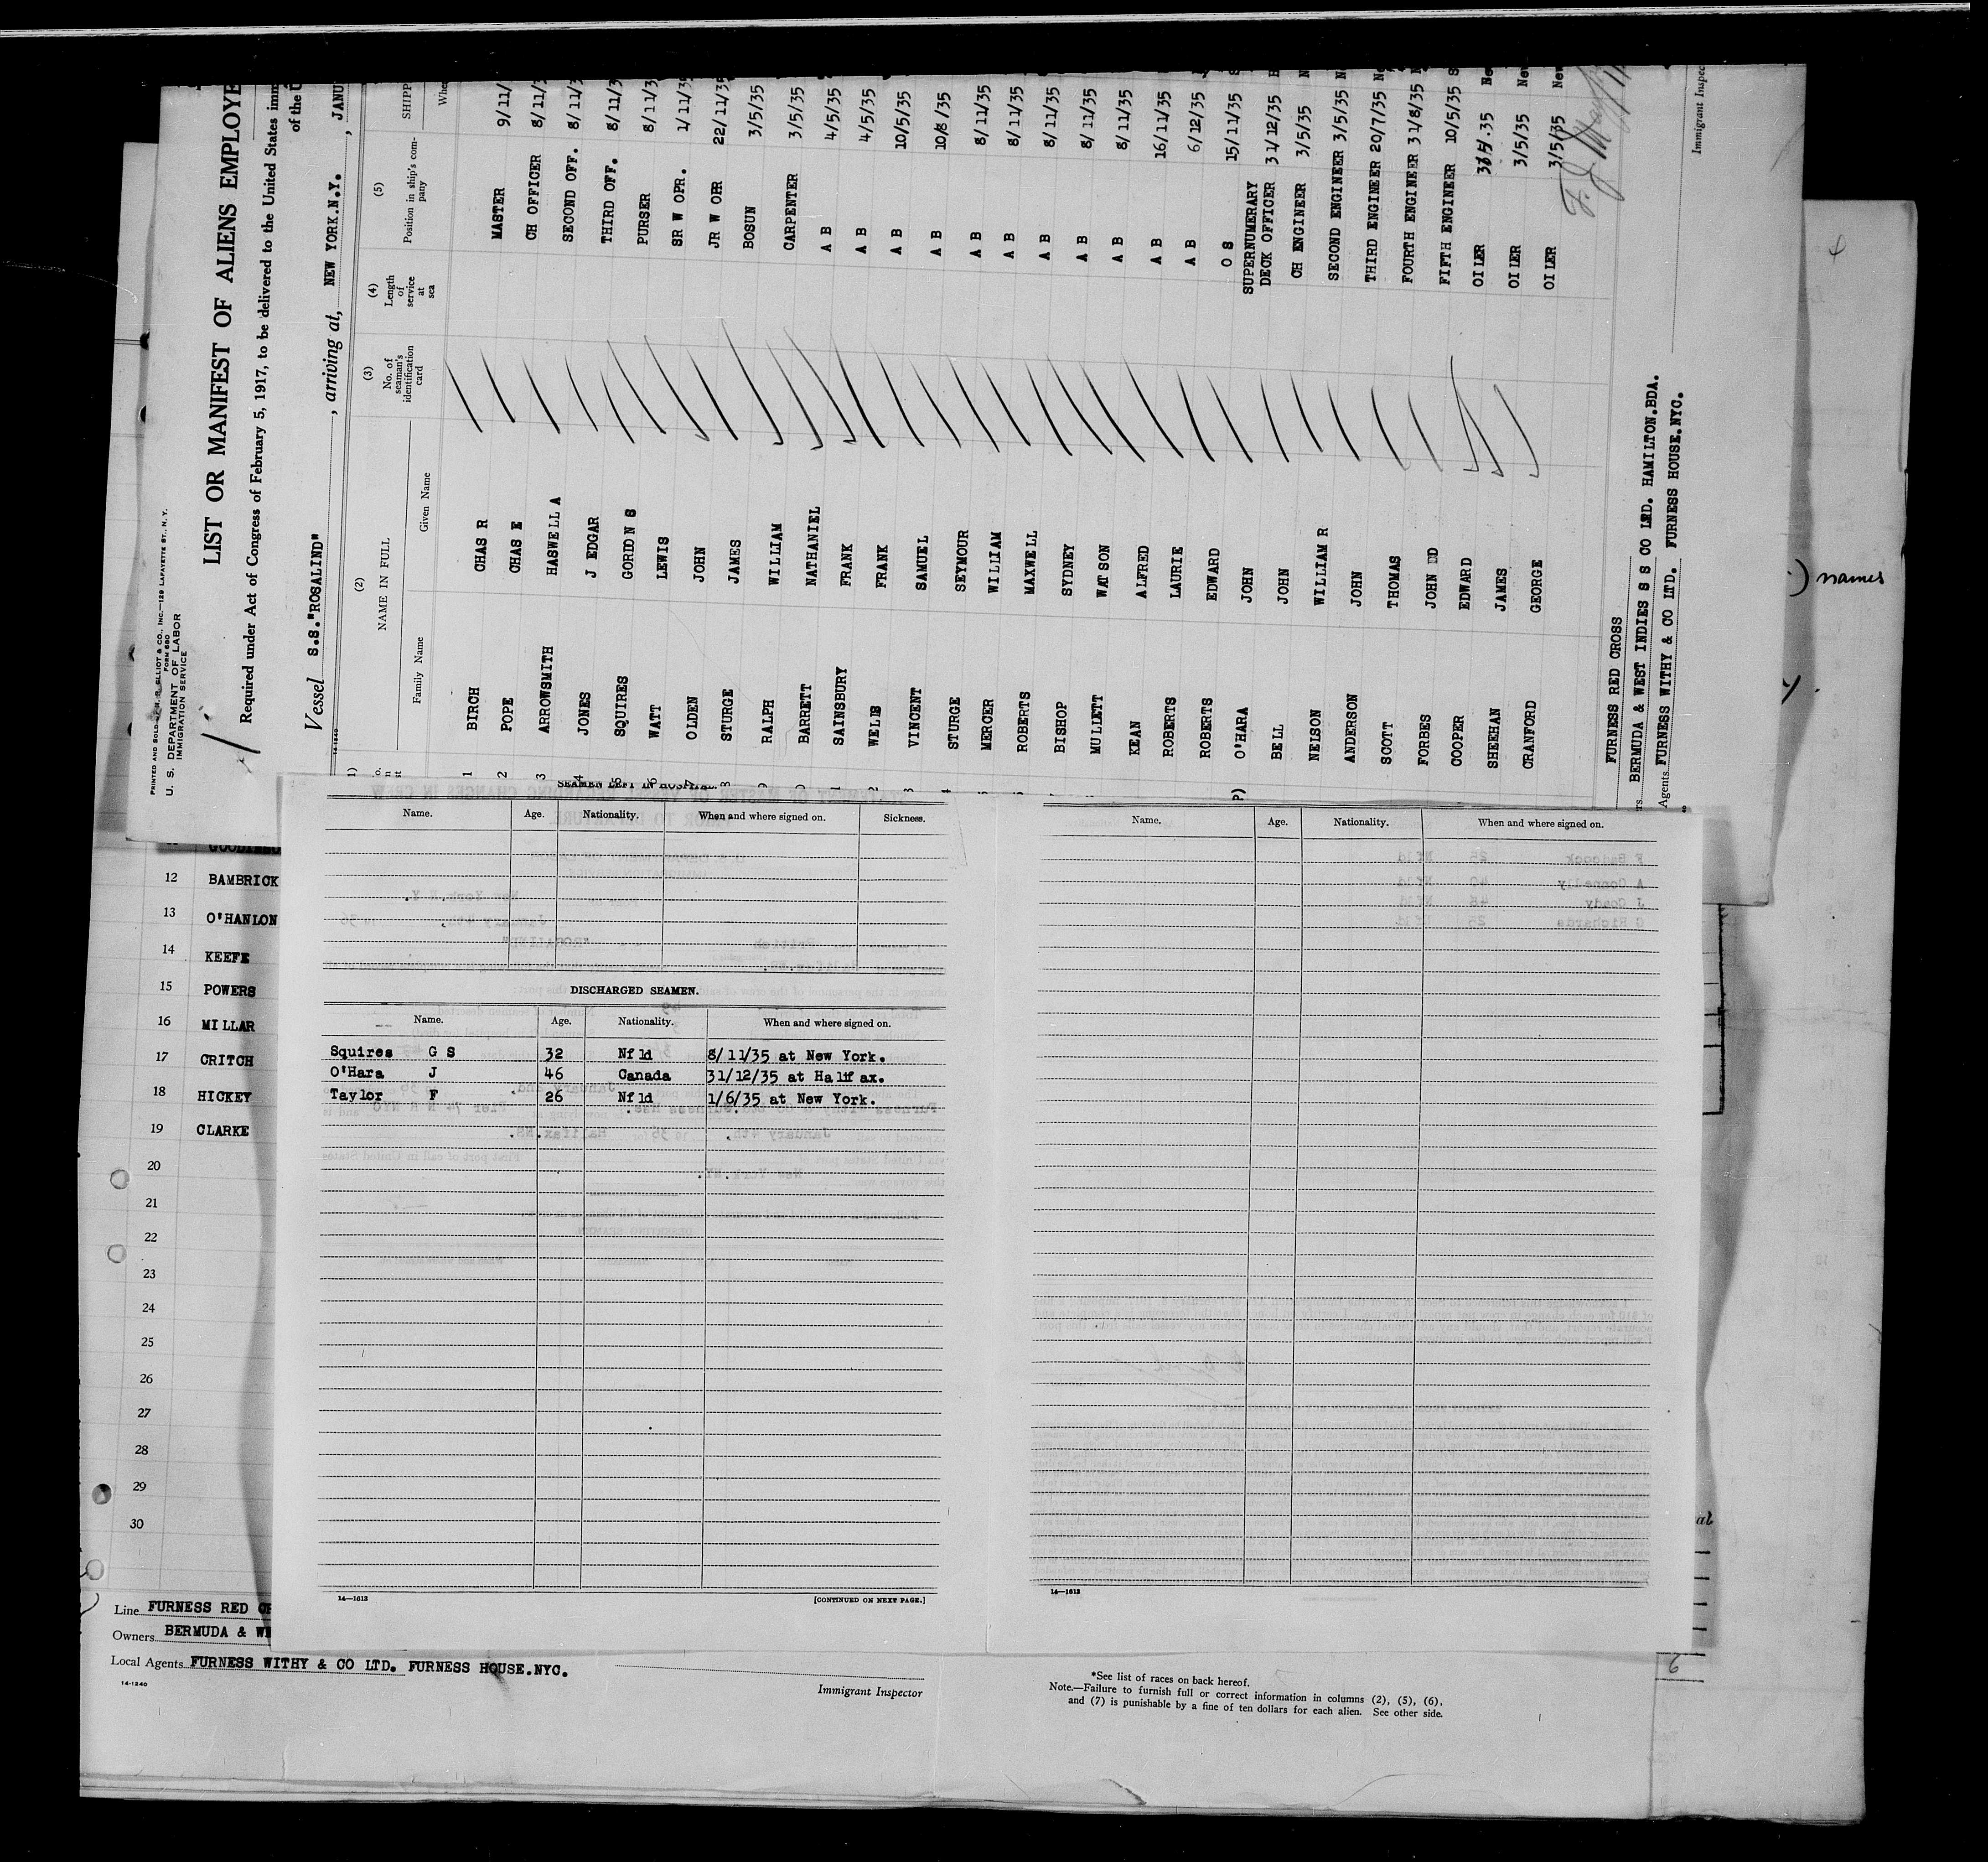 PRINTED AND SOLD BY M. B. ELLIOT & CO., INC.—129 LAFAYETTE ST., N.Y.
FORM 680
U. S. DEPARTMENT OF LABOR
IMMIGRATION SERVICE
LIST OR MANIFEST OF ALIENS EMPLOYE
Required under Act of Congress of February 5, 1917, to be delivered to the United States imm
of the U
Vessel S.S."ROSALIND" , arriving at, NEW YORK.N.Y. , JANU
(2) (3) (4) (5)
NAME IN FULL No. of seaman's identification card Length of service at sea Position in ship's company SHIPP
Family Name Given Name Whe
1 BIRCH CHAS R MASTER 9/11/
2 POPE CHAS E CH OFFICER 8/11/3
3 ARROWSMITH HASWELL A SECOND OFF. 8/11/3
4 JONES J EDGAR THIRD OFF. 8/11/3
5 SQUIRES GORDON S PURSER 8/11/3
6 WATT LEWIS SR W OPR. 1/11/35
7 OLDEN JOHN JR W OPR 22/11/35
8 STURGE JAMES BOSUN 3/5/35
RALPH WILLIAM CARPENTER 3/5/35
BARRETT NATHANIEL A B 4/5/35
SAINSBURY FRANK A B 4/5/35
WELLS FRANK A B 10/5/35
VINCENT SAMUEL A B 10/8/35
STURGE SEYMOUR A B 8/11/35
MERCER WILLIAM A B 8/11/35
ROBERTS MAXWELL A B 8/11/35
BISHOP SYDNEY A B 8/11/35
MULLETT WATSON A B 8/11/35
KEAN ALFRED A B 16/11/35
ROBERTS LAURIE A B 6/12/35
ROBERTS EDWARD O S 15/11/35
O'HARA JOHN SUPERNUMERARY DECK OFFICER 31/12/35
BELL JOHN CH ENGINEER 3/5/35
NELSON WILLIAM R SECOND ENGINEER 3/5/35
ANDERSON JOHN THIRD ENGINEER 20/7/35
SCOTT THOMAS FOURTH ENGINEER 31/8/35
FORBES JOHN FIFTH ENGINEER 10/5/35
COOPER EDWARD OILER .35 Ne
SHEEHAN JAMES OILER 3/5/35 Ne
CRANFORD GEORGE OILER 3/5/35 New
FURNESS RED CROSS
BERMUDA & WEST INDIES S S CO LTD. HAMILTON.BDA.
Agents FURNESS WITHY & CO LTD. FURNESS HOUSE.NYC.
Immigrant Inspec
names
SEAMEN LEFT IN HOSPITAL.
Name. Age. Nationality. When and where signed on. Sickness.
DISCHARGED SEAMEN.
Name. Age. Nationality. When and where signed on.
Squires G S 32 Nfld 8/11/35 at New York.
O'Hara J 46 Canada 31/12/35 at Halifax.
Taylor F 26 Nfld 1/6/35 at New York.
14—1613 [CONTINUED ON NEXT PAGE.]
Name. Age. Nationality. When and where signed on.
14—1613
12 BAMBRICK
13 O'HANLON
14 KEEFE
15 POWERS
16 MILLAR
17 CRITCH
18 HICKEY
19 CLARKE
20
21
22
23
24
25
26
27
28
29
30
Line FURNESS RED CR
Owners BERMUDA & WE
Local Agents FURNESS WITHY & CO LTD. FURNESS HOUSE.NYC.
14-1240
Immigrant Inspector
*See list of races on back hereof.
Note.—Failure to furnish full or correct information in columns (2), (5), (6),
and (7) is punishable by a fine of ten dollars for each alien. See other side.
6